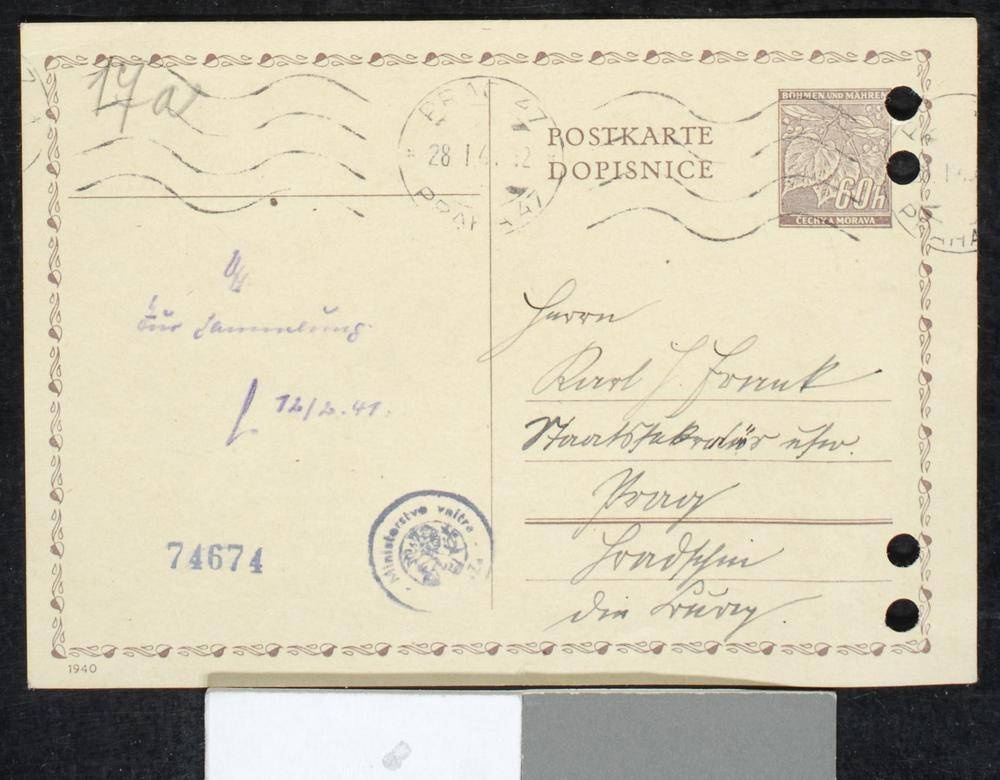 17a
PRAG 47
28 I 4 12
PRAHA 47
POSTKARTE
DOPISNICE
BÖHMEN UND MÄHREN
60h
ČECHY A MORAVA
Zur Sammlung
12/2.41.
Herrn
Karl H. Frank
Staatssekretär usw.
Prag
Hradschin
die Burg.
Ministerstvo vnitra
74674
1940